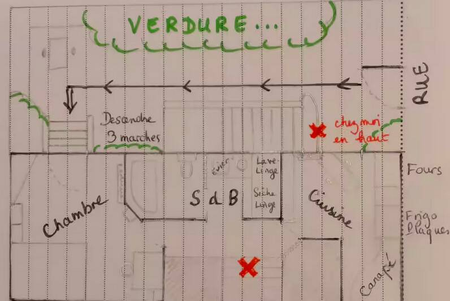 VERDURE...
RUE
Descendre
3 marches
chez moi
en haut
Chambre
évier
Lave-
Linge
Sèche
Linge
S d B
Cuisine
Fours
Frigo
Plaques
Canapé